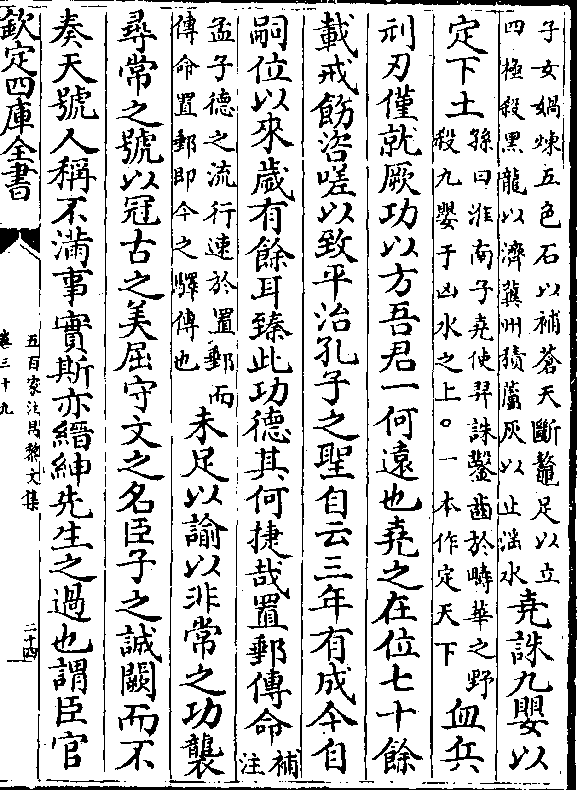 子女媧煉五色石以補蒼天斷鼇足以立
四極殺黑龍以濟冀州積蘆灰以止滛水
堯誅九嬰以
定下土
孫曰淮南子堯使羿誅鑿齒於疇華之野
殺九嬰于凶水之上。一本作定天下
血兵
刓刃僅就厥功以方吾君一何遠也堯之在位七十餘
載戒飭咨嗟以致平治孔子之聖自云三年有成今自
嗣位以來歲有餘耳臻此功德其何捷哉置郵傳命
補
注
孟子德之流行速於置郵而
傳命置郵即今之驛傳也
未足以諭以非常之功襲
尋常之號以冠古之美屈守文之名臣子之誠闕而不
奏天號人稱不滿事實斯亦縉紳先生之過也謂臣官
欽定四庫全書
五百家注昌黎文集
卷三十九
二十四